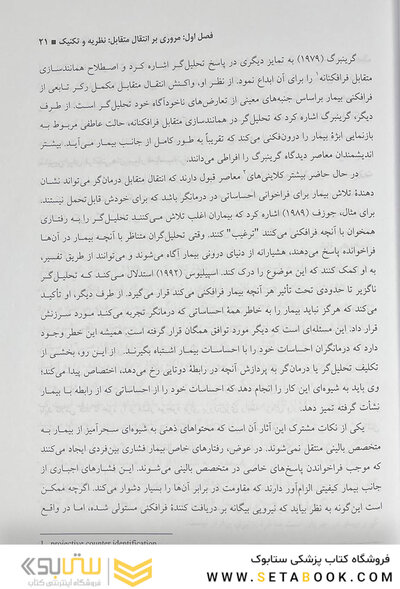 فصل اول: مروری بر انتقال متقابل: نظریه و تکنیک ■ ۲۱
گرینبرگ (۱۹۷۹) به تمایز دیگری در پاسخ تحلیل‌گر اشاره کرد و اصطلاح همانندسازی
متقابل فرافکنانه۱ را برای آن ابداع نمود. از نظر او، واکنش انتقال متقابل مکمل رکر تابعی از
فرافکنی بیمار براساس جنبه‌های معینی از تعارض‌های ناخودآگاه خود تحلیل‌گر است. از طرف
دیگر، گرینبرگ اشاره کرد که تحلیل‌گر در همانندسازی متقابل فرافکنانه، حالت عاطفی مربوط به
بازنمایی ابژهٔ بیمار را درون‌فکنی می‌کند که تقریباً به طور کامل از جانب بیمار می‌آید. بیشتر
اندیشمندان معاصر دیدگاه گرینبرگ را افراطی می‌دانند.
در حال حاضر بیشتر کلاینی‌های۲ معاصر قبول دارند که انتقال متقابل درمان‌گر می‌تواند نشان
دهندهٔ تلاش بیمار برای فراخوانی احساساتی در درمانگر باشد که برای خودش قابل‌تحمل نیستند.
برای مثال، جوزف (۱۹۸۹) اشاره کرد که بیماران اغلب تلاش می‌کنند تحلیل‌گر را به رفتاری
همخوان با آنچه فرافکنی می‌کنند "ترغیب" کنند. وقتی تحلیل‌گران متناظر با آنچه بیمار در آن‌ها
فراخوانده پاسخ می‌دهند، هشیارانه از دنیای درونی بیمار آگاه می‌شوند و می‌توانند از طریق تفسیر،
به او کمک کنند که این موضوع را درک کند. اسپیلیوس (۱۹۹۲) استدلال می‌کند که تحلیل‌گر
ناگزیر تا حدودی تحت تأثیر هر آنچه بیمار فرافکنی می‌کند قرار می‌گیرد. از طرف دیگر، او تأکید
می‌کند که هرگز نباید بیمار را به خاطر همهٔ احساساتی که درمانگر تجربه می‌کند مورد سرزنش
قرار داد. این مسئله‌ای است که دیگر مورد توافق همگان قرار گرفته است. همیشه این خطر وجود
دارد که درمانگران احساسات خود را با احساسات بیمار اشتباه بگیرند. از این رو، بخشی از
تکلیف تحلیل‌گر یا درمان‌گر به پردازش آنچه در رابطهٔ دوتایی رخ می‌دهد، اختصاص پیدا می‌کند؛
وی باید به شیوه‌ای این کار را انجام دهد که احساسات خود را از احساساتی که از رابطه با بیمار
نشأت گرفته تمیز دهد.
یکی از نکات مشترک این آثار آن است که محتواهای ذهنی به شیوه‌ای سحرآمیز از بیمار به
متخصص بالینی منتقل نمی‌شوند. در عوض، رفتارهای خاص بیمار فشاری بین‌فردی ایجاد می‌کنند
که موجب فراخواندن پاسخ‌های خاصی در متخصص بالینی می‌شوند. این فشارهای اجباری از
جانب بیمار کیفیتی الزام‌آور دارند که مقاومت در برابر آن‌ها را بسیار دشوار می‌کند. اگرچه ممکن
است این‌گونه به نظر بیاید که نیرویی بیگانه بر دریافت کنندهٔ فرافکنی مستولی شده، اما در واقع
1. projective counter identification
ستابوک
فروشگاه اینترنتی کتاب
فروشگاه کتاب پزشکی ستابوک
WWW.SETABOOK.COM